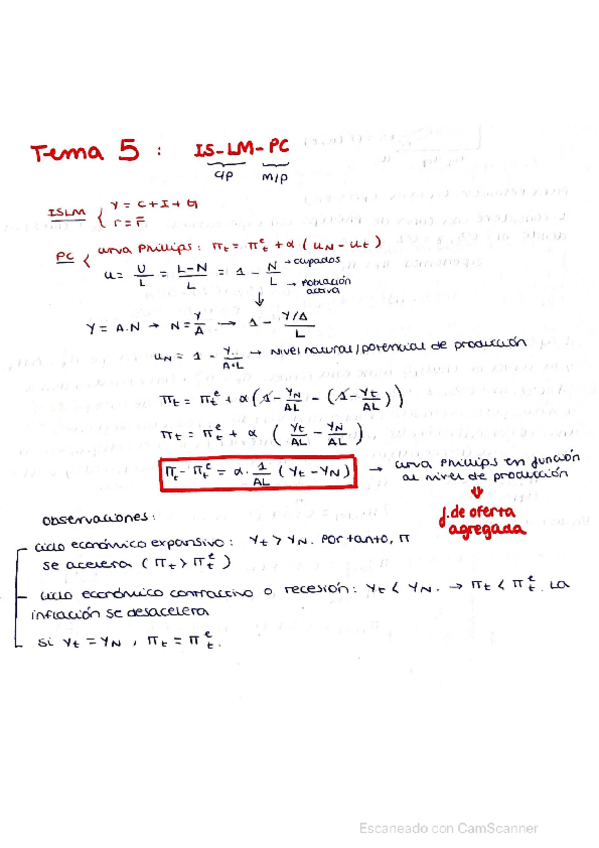 Tema 5 : IS-LM-PC
c/p m/p
ISLM { Y = C + I + G
r = r̄
PC { curva Phillips: πt = πt^e + α (uN - ut)
u = U/L = (L-N)/L = 1 - N/L → ocupados
→ población activa
Y = A.N → N = Y/A → 1 - (Y/A)/L
uN = 1 - Y../(A·L) → Nivel natural/potencial de producción
πt = πt^e + α (1 - YN/AL - (1 - Yt/AL))
πt = πt^e + α (Yt/AL - YN/AL)
πt - πt^e = α · 1/AL (Yt - YN) → curva Phillips en función
al nivel de producción
↓
f. de oferta
agregada
observaciones:
- ciclo económico expansivo: Yt > YN. Por tanto, π
se acelera (πt > πt^e)
- ciclo económico contractivo o recesión: Yt < YN. → πt < πt^e. La
inflación se desacelera
- si Yt = YN, πt = πt^e.
Escaneado con CamScanner